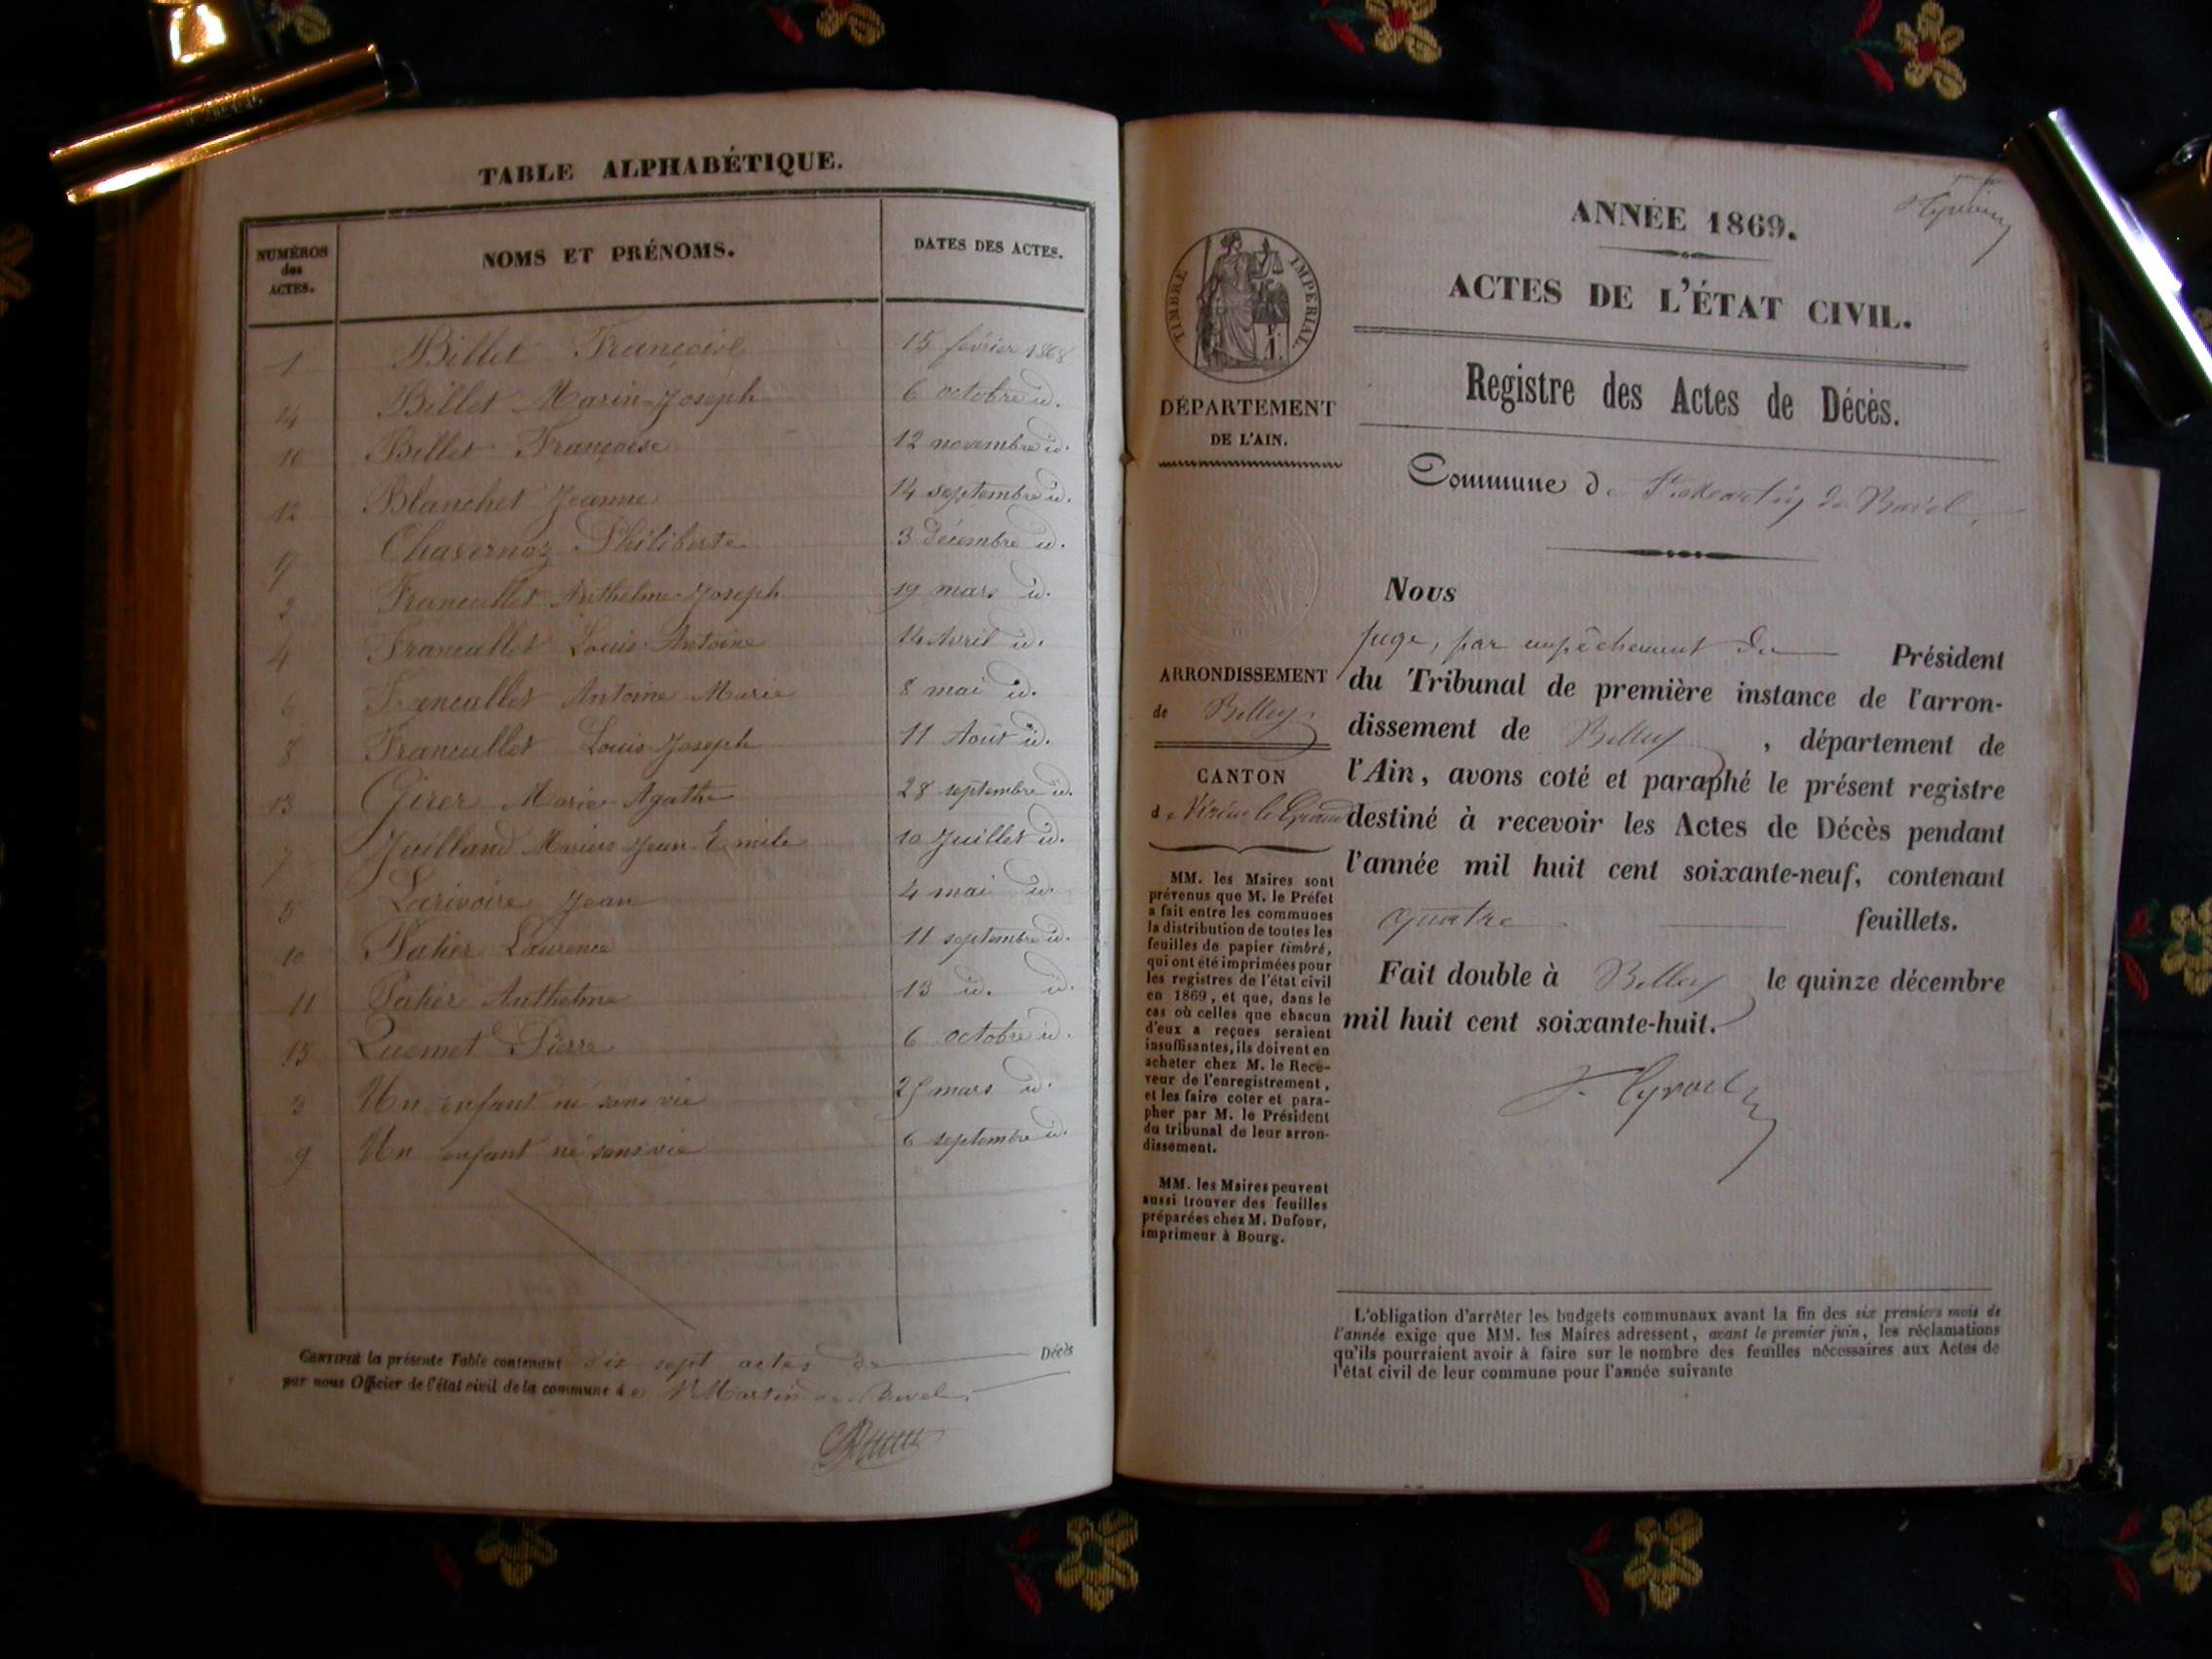 TABLE ALPHABÉTIQUE.
NUMÉROS des ACTES. NOMS ET PRÉNOMS. DATES DES ACTES.
1 Billet Françoise 15 février 1868
14 Billet Marin-Joseph 6 octobre id.
16 Billet Françoise 12 novembre id.
12 Blanchet Jeanne 14 septembre id.
17 Chavernoz Philiberte 3 décembre id.
2 Francallet Anthelme-Joseph 19 mars id.
4 Francallet Louis-Antoine 14 Avril id.
6 Francallet Antoine Marie 8 mai id.
8 Francallet Louis-Joseph 11 Août id.
13 Girer Marie-Agathe 28 septembre id.
7 Juilland Marius Jean-Emile 10 Juillet id.
5 Larivoire Jean 4 mai id.
10 Patier Laurence 11 septembre id.
11 Patier Anthelme 13 id. id.
15 Pierre 6 octobre id.
3 Un enfant né sans vie mars id.
9 Un enfant né sans vie 6 septembre id.
CERTIFIÉ la présente Table contenant dix sept actes de Décès
par nous Officier de l'état civil de la commune de St Martin de Bavel.
ANNÉE 1869.
ACTES DE L'ÉTAT CIVIL.
Registre des Actes de Décès.
Commune de St Martin de Bavel.
TIMBRE IMPÉRIAL.
DÉPARTEMENT
DE L'AIN.
ARRONDISSEMENT
de Belley
CANTON
de Virieu le Grand
MM. les Maires sont
prévenus que M. le Préfet
a fait entre les communes
la distribution de toutes les
feuilles de papier timbré,
qui ont été imprimées pour
les registres de l'état civil
en 1869, et que, dans le
cas où celles que chacun
d'eux a reçues seraient
insuffisantes, ils doivent en
acheter chez M. le Rece-
veur de l'enregistrement,
et les faire coter et para-
pher par M. le Président
du tribunal de leur arron-
dissement.
MM. les Maires peuvent
aussi trouver des feuilles
préparées chez M. Dufour,
imprimeur à Bourg.
Nous
juge, par empêchement du Président
du Tribunal de première instance de l'arron-
dissement de Belley, département de
l'Ain, avons coté et paraphé le présent registre
destiné à recevoir les Actes de Décès pendant
l'année mil huit cent soixante-neuf, contenant
quatre feuillets.
Fait double à Belley le quinze décembre
mil huit cent soixante-huit.
L'obligation d'arrêter les budgets communaux avant la fin des six premiers mois de
l'année exige que MM. les Maires adressent, avant le premier juin, les réclamations
qu'ils pourraient avoir à faire sur le nombre des feuilles nécessaires aux Actes de
l'état civil de leur commune pour l'année suivante